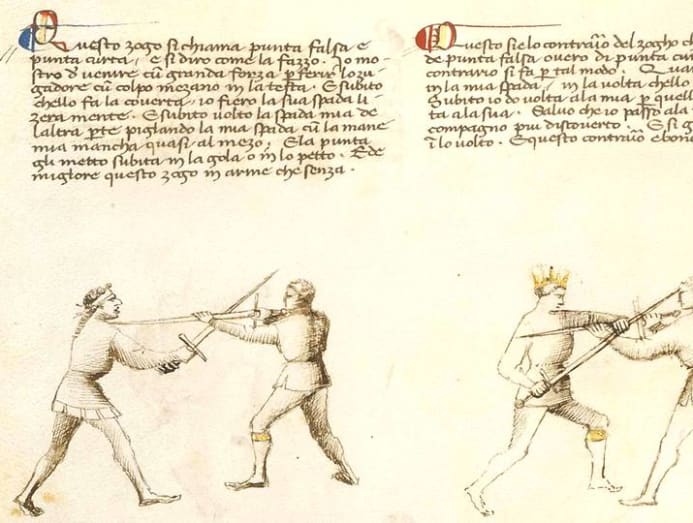 Questo zogo si chiama punta falsa e
punta curta, e si diro come la fazzo. Io mo-
stro d' venire cū granda forza p ferir lo zu-
gadore cū colpo mezano in la testa. E subito
chello fa la coverta, io fiero la sua spada li-
zera mente. E subito volto la spada mia de
l altra pte pigliando la mia spada cū la mane
mia mancha quasi al mezo, E la punta
gli metto subita in la gola o in lo petto. Ed e
migliore questo zogo in arme che senza.
Questo sie lo contrario del zogho
de punta falsa overo di punta
contrario si fa p tal modo.
in la mia spada, in la volta chello
Subito io do volta ala mia p quell
ta ala sua. Salvo che io passo ala
compagno piu discoverto. E si
ī lo volto. E questo contrario e